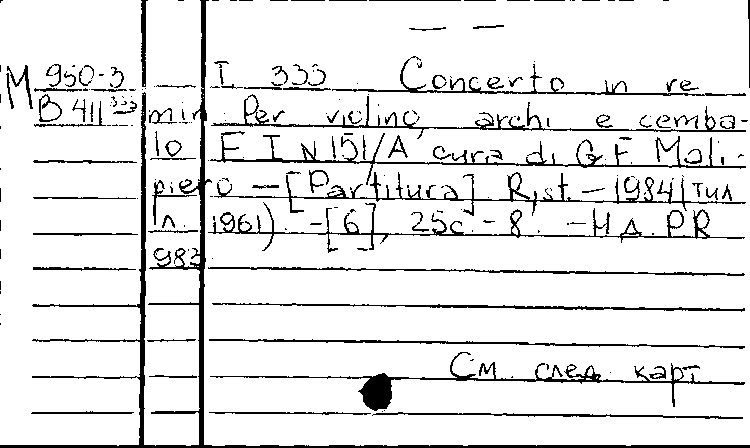 — —
М 950-3 T. 333 Concerto in re
В 411 333 min per violino, archi e cemba-
lo F I N 151/A cura di G. F. Mali-
piero — [Partitura] Rist. — 1984 (тип
1961). — [6], 25 с. — 8°. — Н. Д. PR
983
См. след. карт.